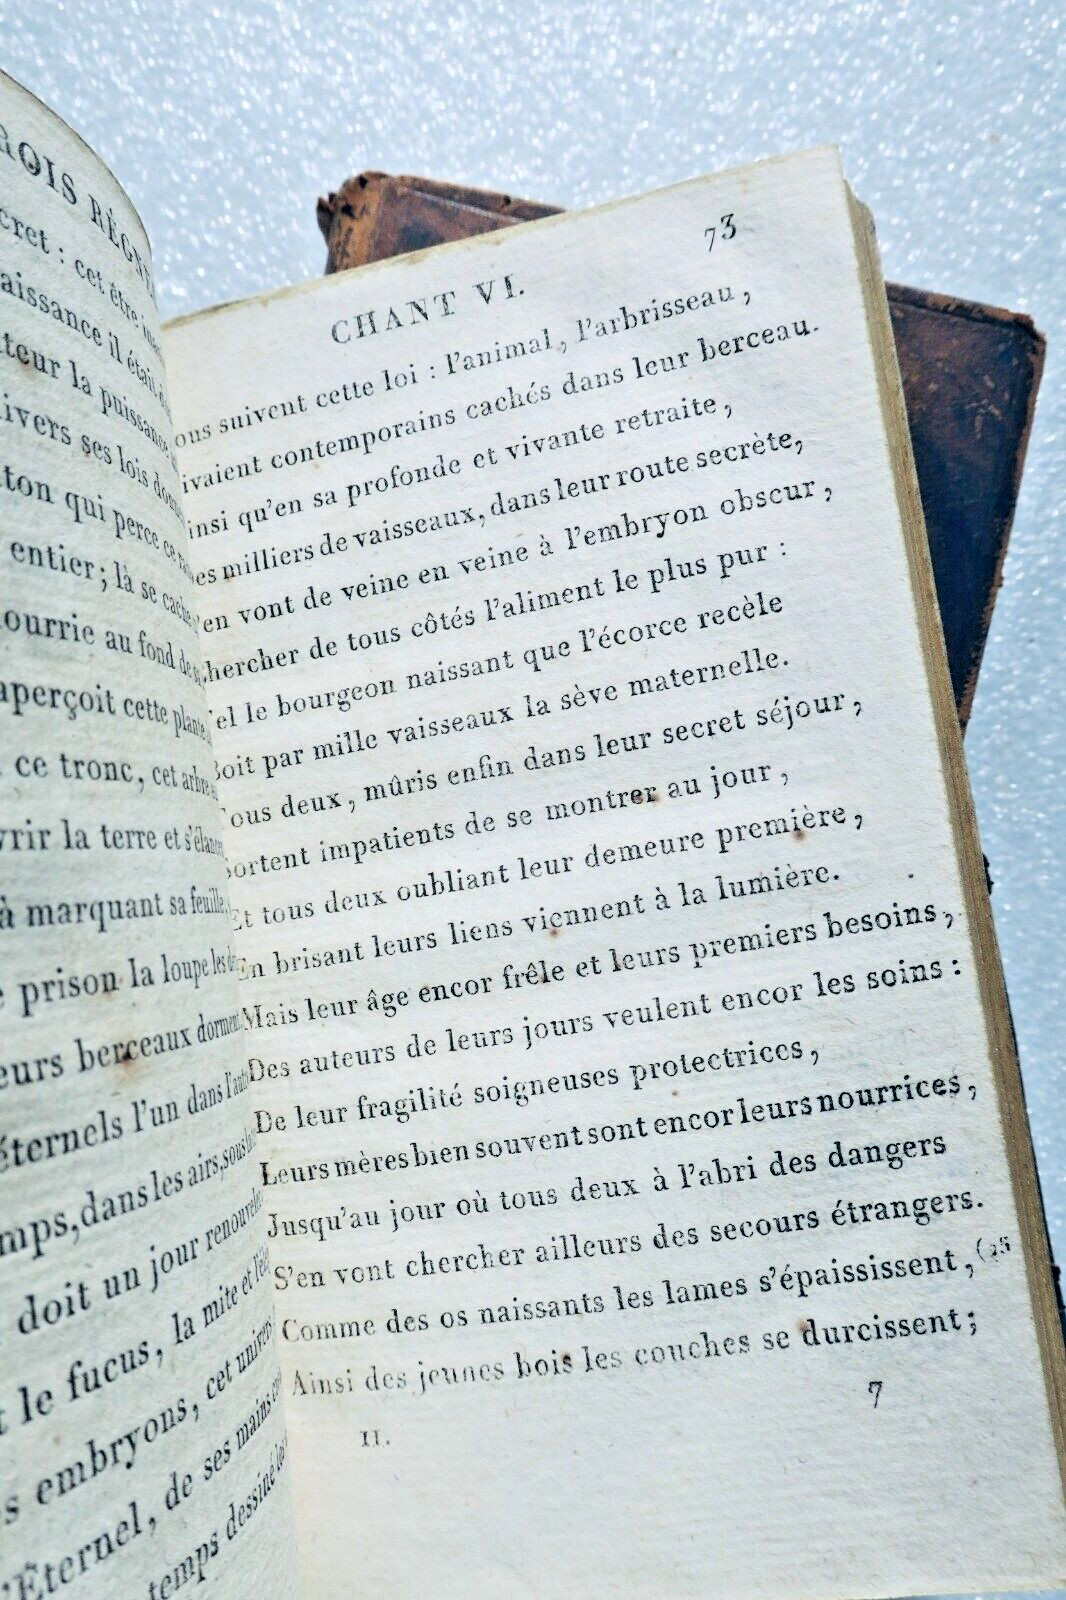 ROIS RÈGNE
cret : cet être
aissance il était
teur la puissance
ivers ses lois
ton qui perce ce
entier ; là se cache
ourrie au fond de
aperçoit cette plante
ce tronc, cet arbre
vrir la terre et s'élance
à marquant sa feuille
prison la loupe les
eurs berceaux dorment
éternels l'un dans l'autre
mps, dans les airs, sous
doit un jour renouveler
le fucus, la mite et
embryons, cet univers
l'Éternel, de ses mains
temps dessiné
CHANT VI. 73
ous suivent cette loi : l'animal, l'arbrisseau,
ivaient contemporains cachés dans leur berceau.
insi qu'en sa profonde et vivante retraite,
es milliers de vaisseaux, dans leur route secrète,
'en vont de veine en veine à l'embryon obscur,
hercher de tous côtés l'aliment le plus pur :
el le bourgeon naissant que l'écorce recèle
Boit par mille vaisseaux la sève maternelle.
Tous deux, mûris enfin dans leur secret séjour,
Sortent impatients de se montrer au jour,
Et tous deux oubliant leur demeure première,
En brisant leurs liens viennent à la lumière.
Mais leur âge encor frêle et leurs premiers besoins,
Des auteurs de leurs jours veulent encor les soins :
De leur fragilité soigneuses protectrices,
Leurs mères bien souvent sont encor leurs nourrices,
Jusqu'au jour où tous deux à l'abri des dangers
S'en vont chercher ailleurs des secours étrangers.
Comme des os naissants les lames s'épaississent, (25
Ainsi des jeunes bois les couches se durcissent ;
II. 7